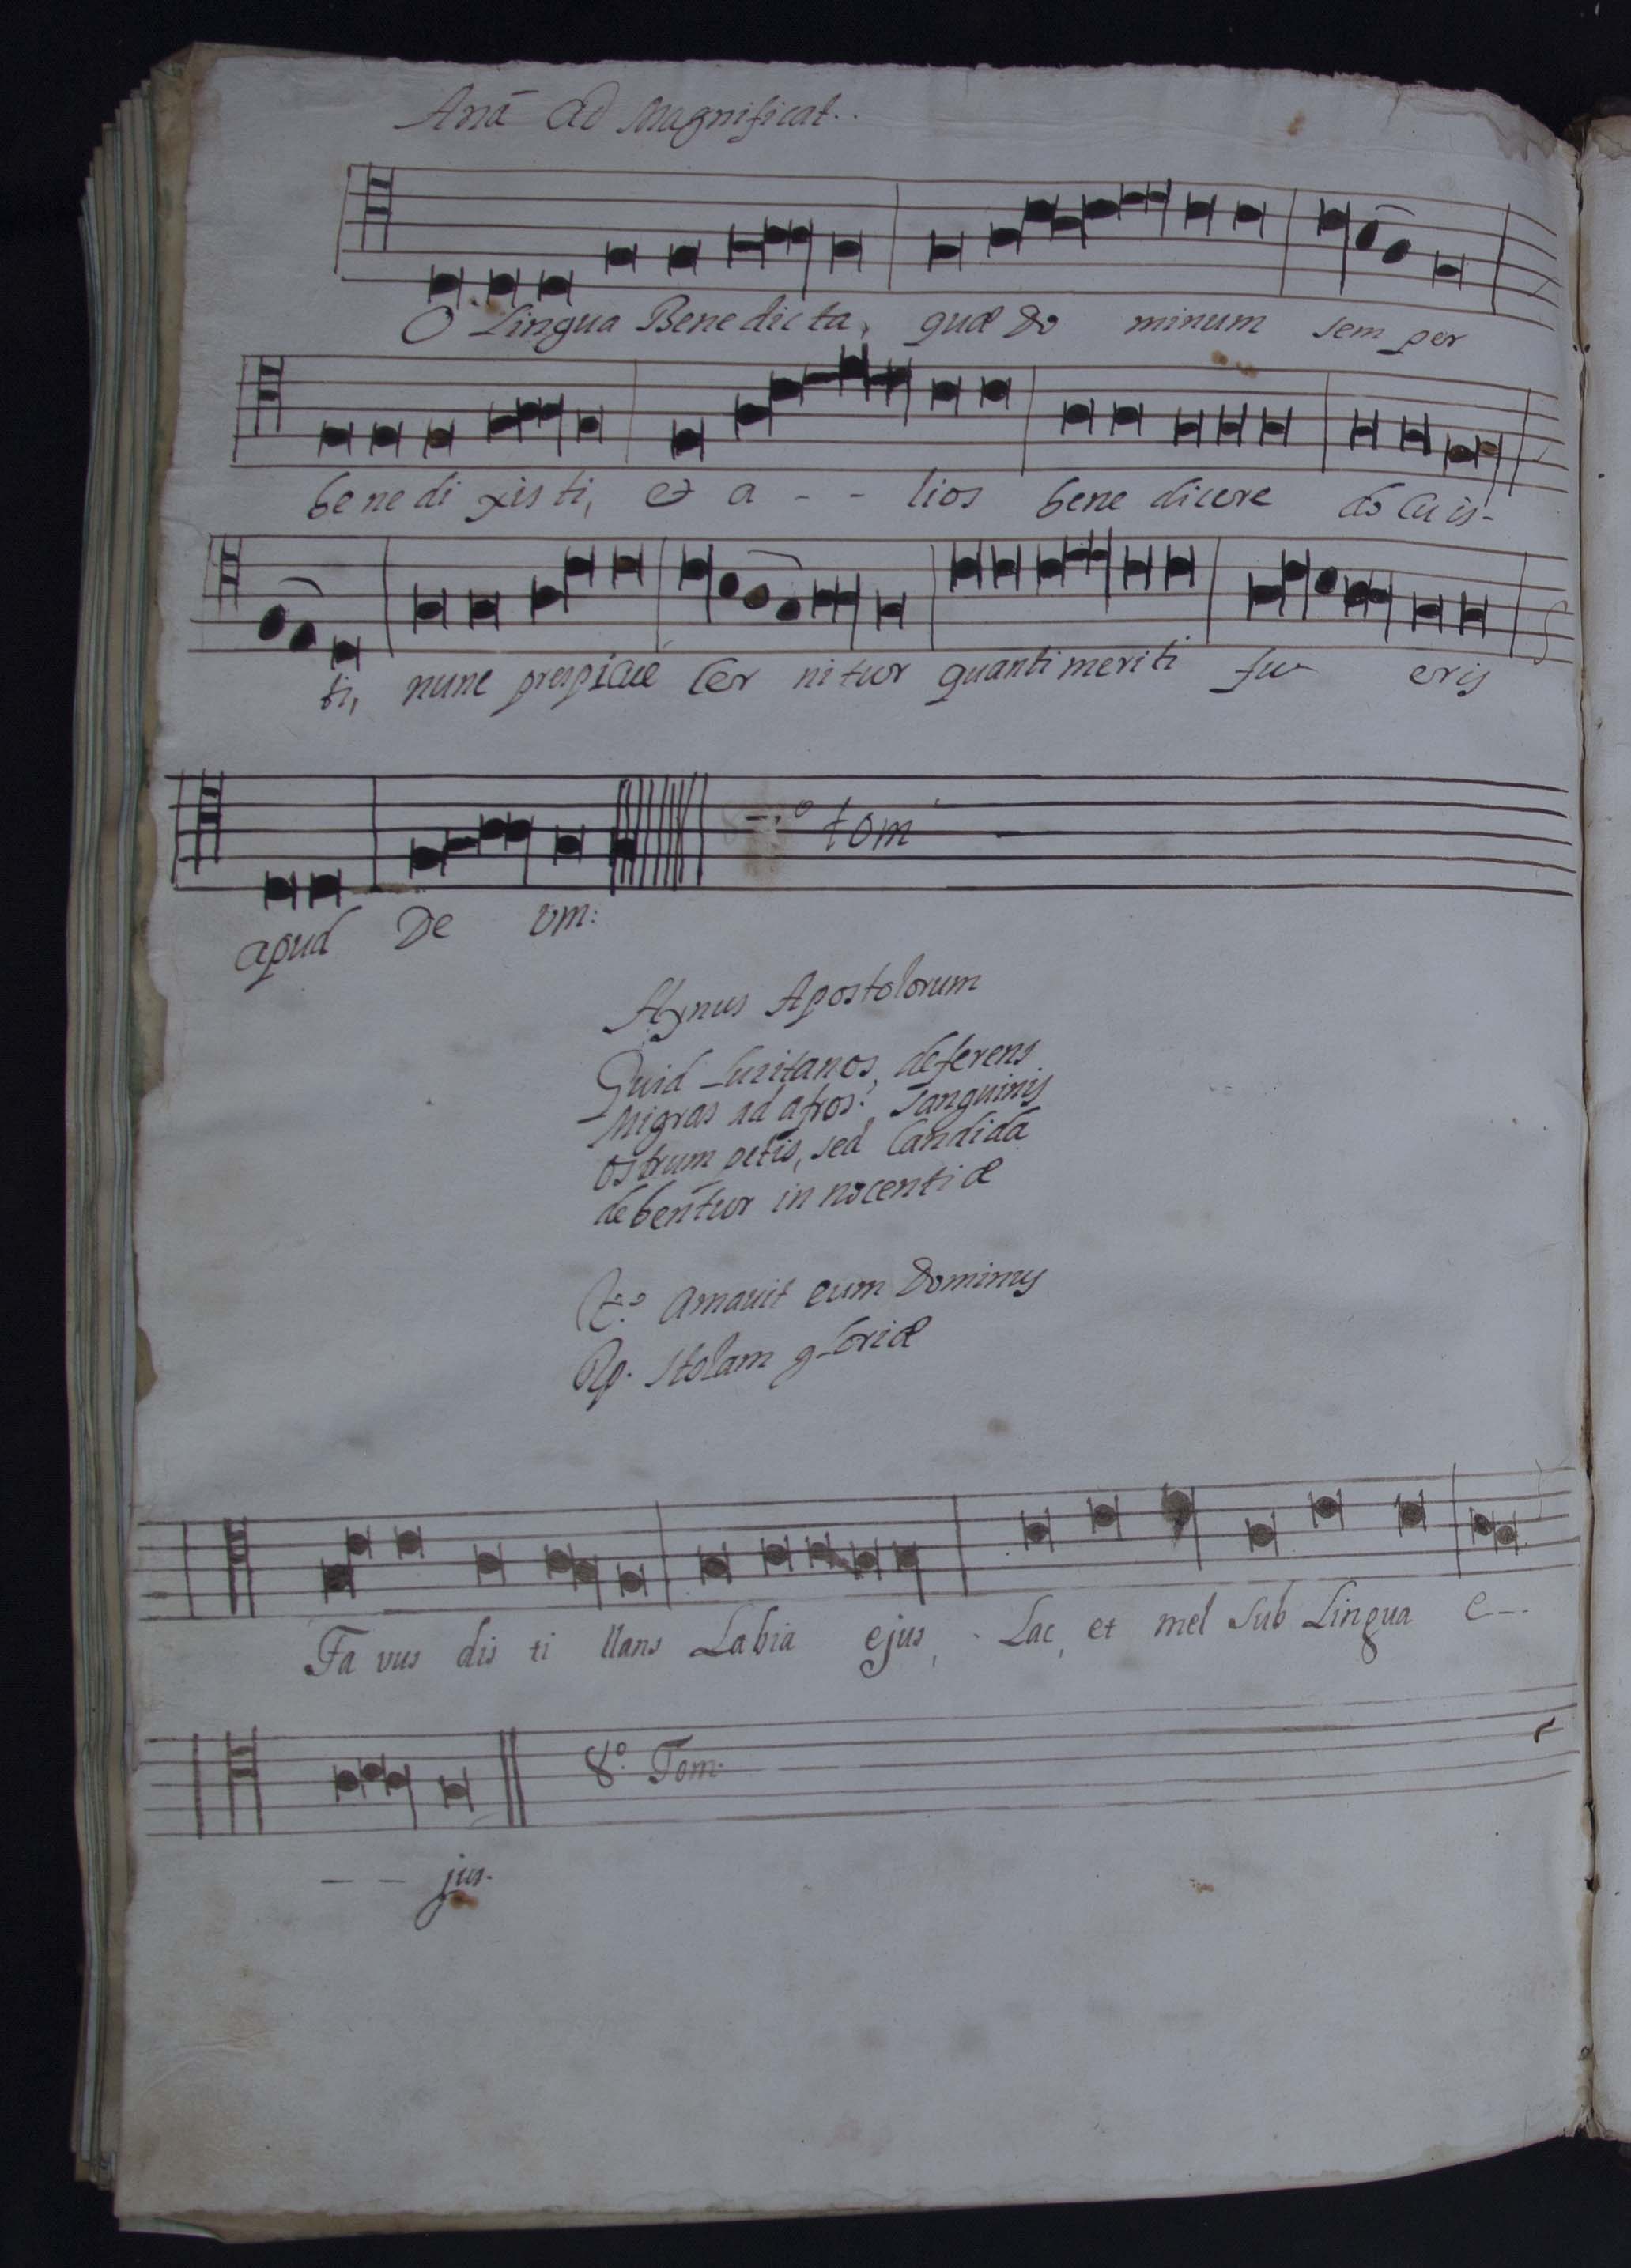 Anã ad Magnificat..
O Lingua Bene dic ta, quæ Do minum sem per
be ne di xis ti, et a - - lios bene dicere do cu is-
ti, nunc prespicue Cer ni tur quanti meriti fu eris
tom
apud De um:
Hynus Apostolorum
Quid Lusitanos, deferens
Migras ad afros? Sanguinis
ostrum petis, sed Candida
debentur in nocentiæ
℣.º Amavit eum Dominus
℟. Stolam gloriæ
Fa vus dis ti llans Labia ejus, Lac, et mel Sub Lingua e--
8.º Tom.
— — jus.